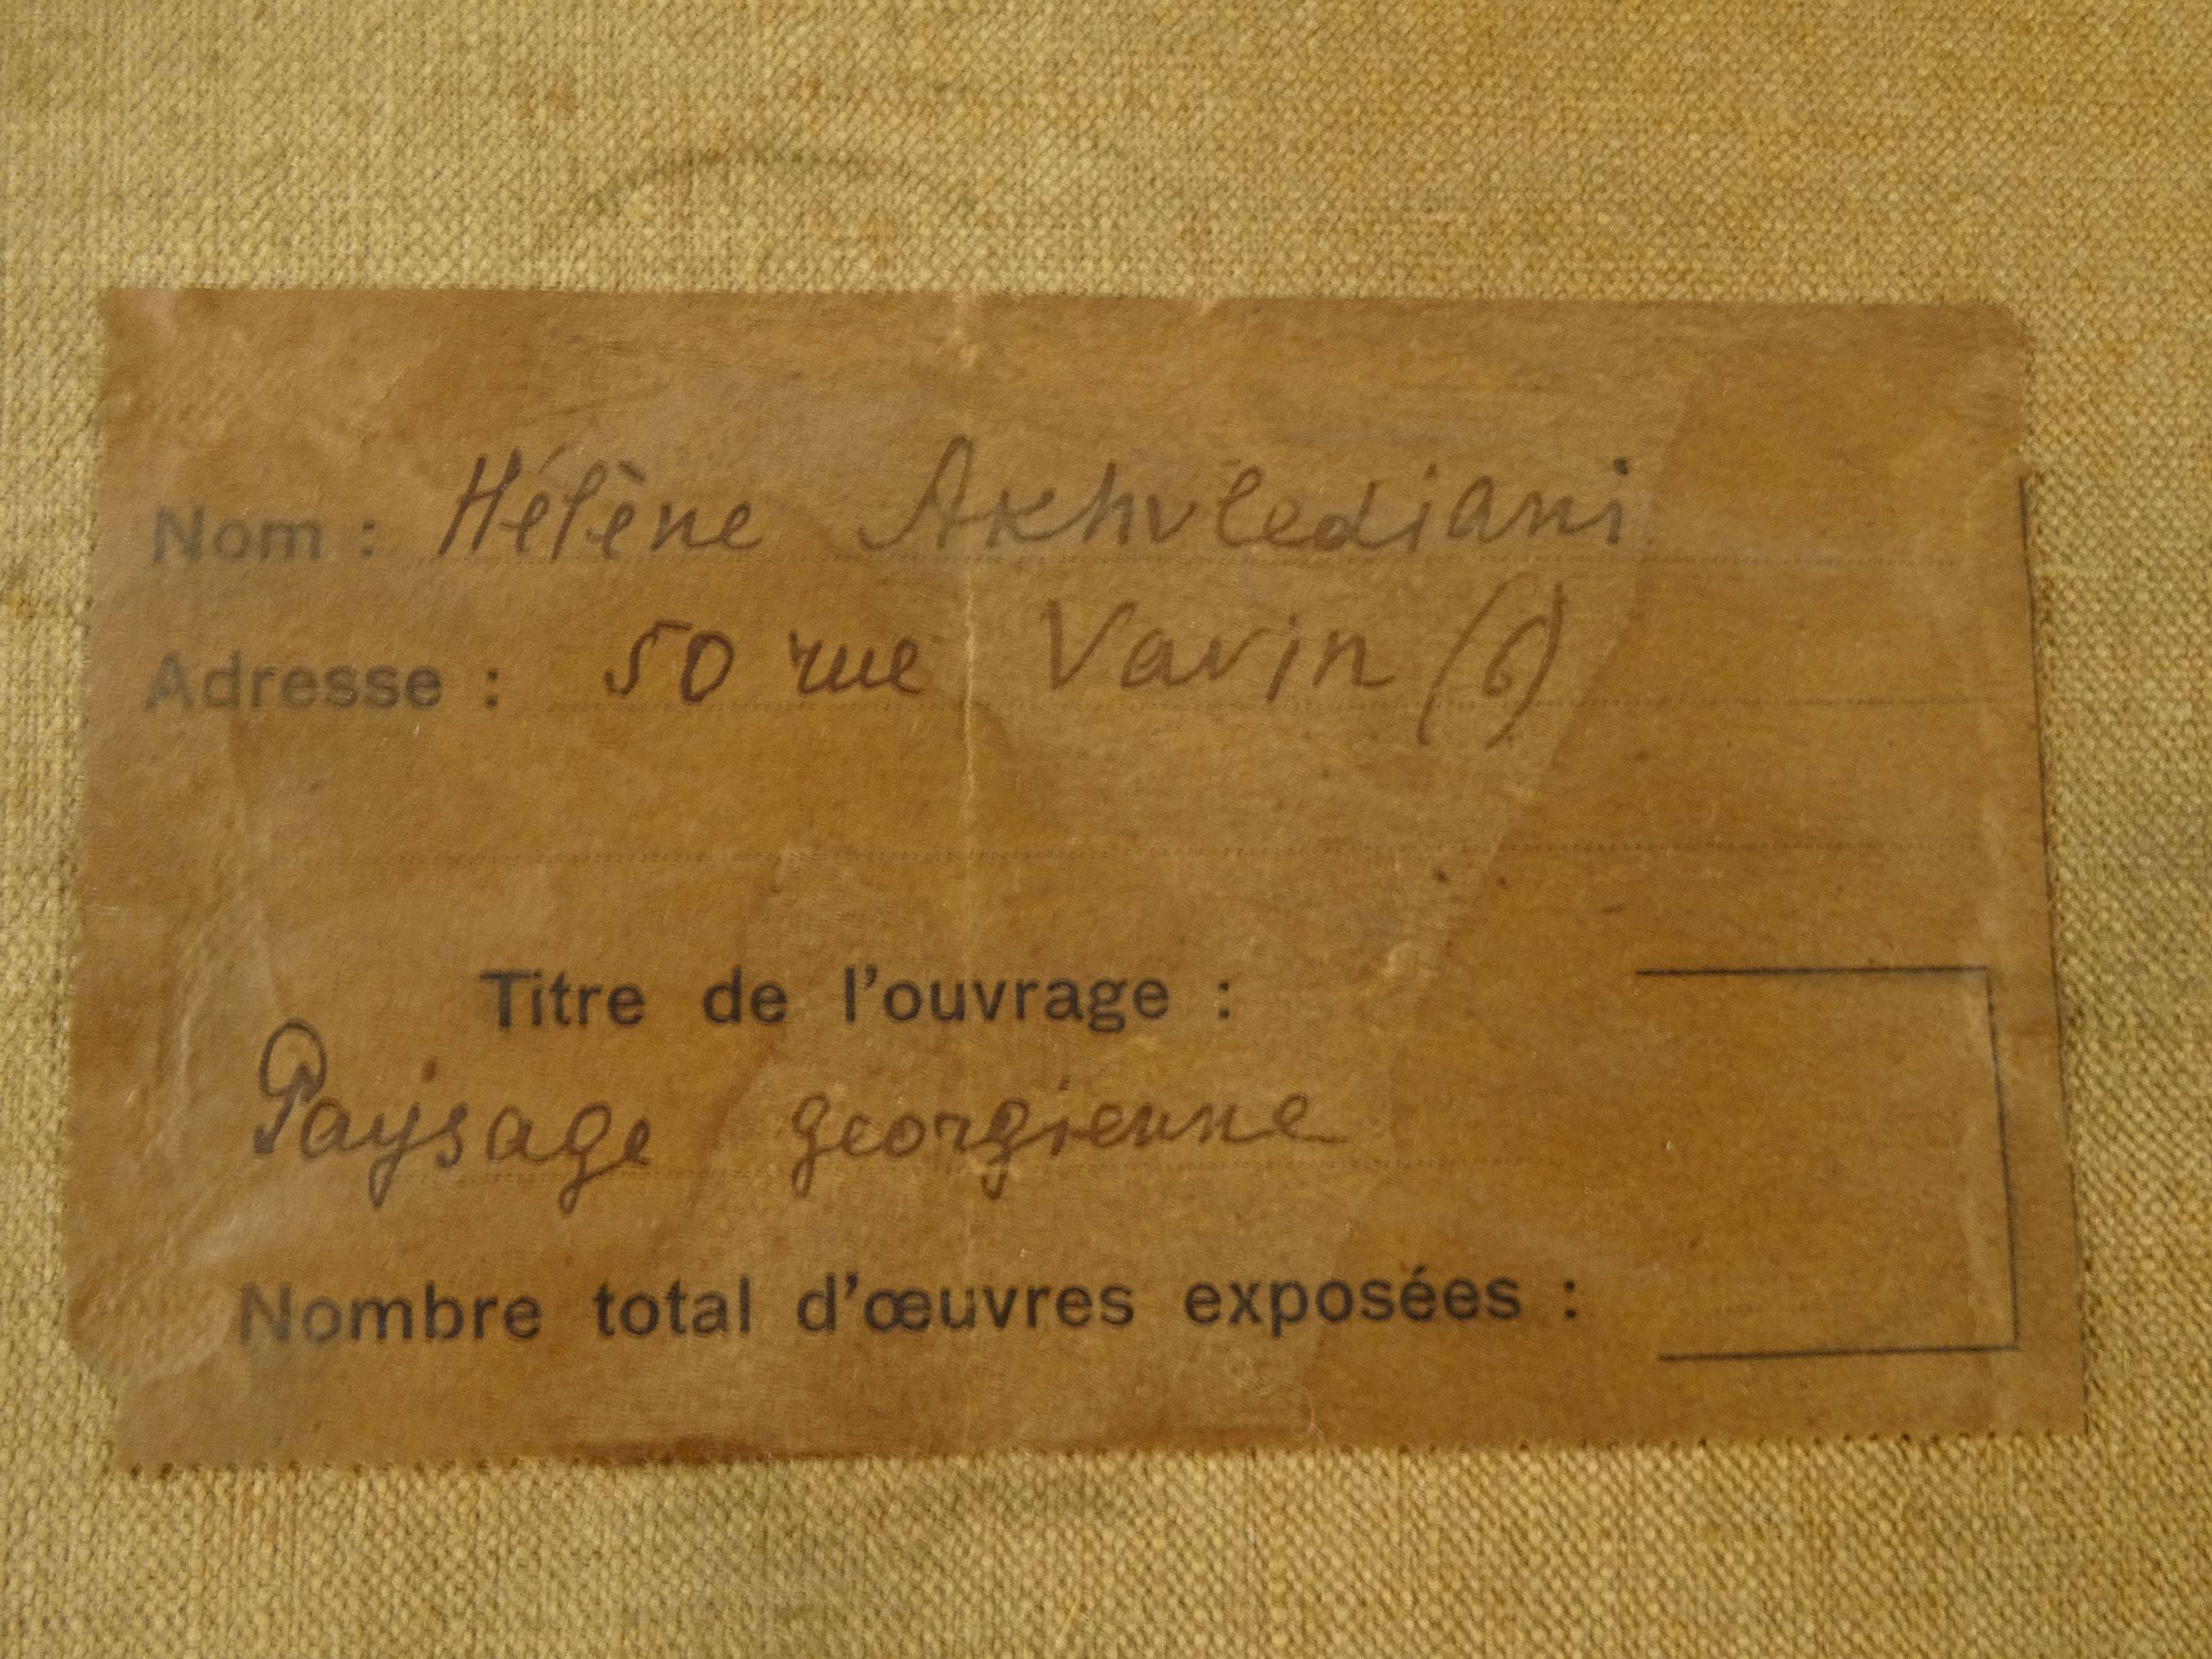 Nom : Hélène Akhvlediani
Adresse : 50 rue Vavin (6)
Titre de l'ouvrage :
Paysage georgienne
Nombre total d'œuvres exposées :